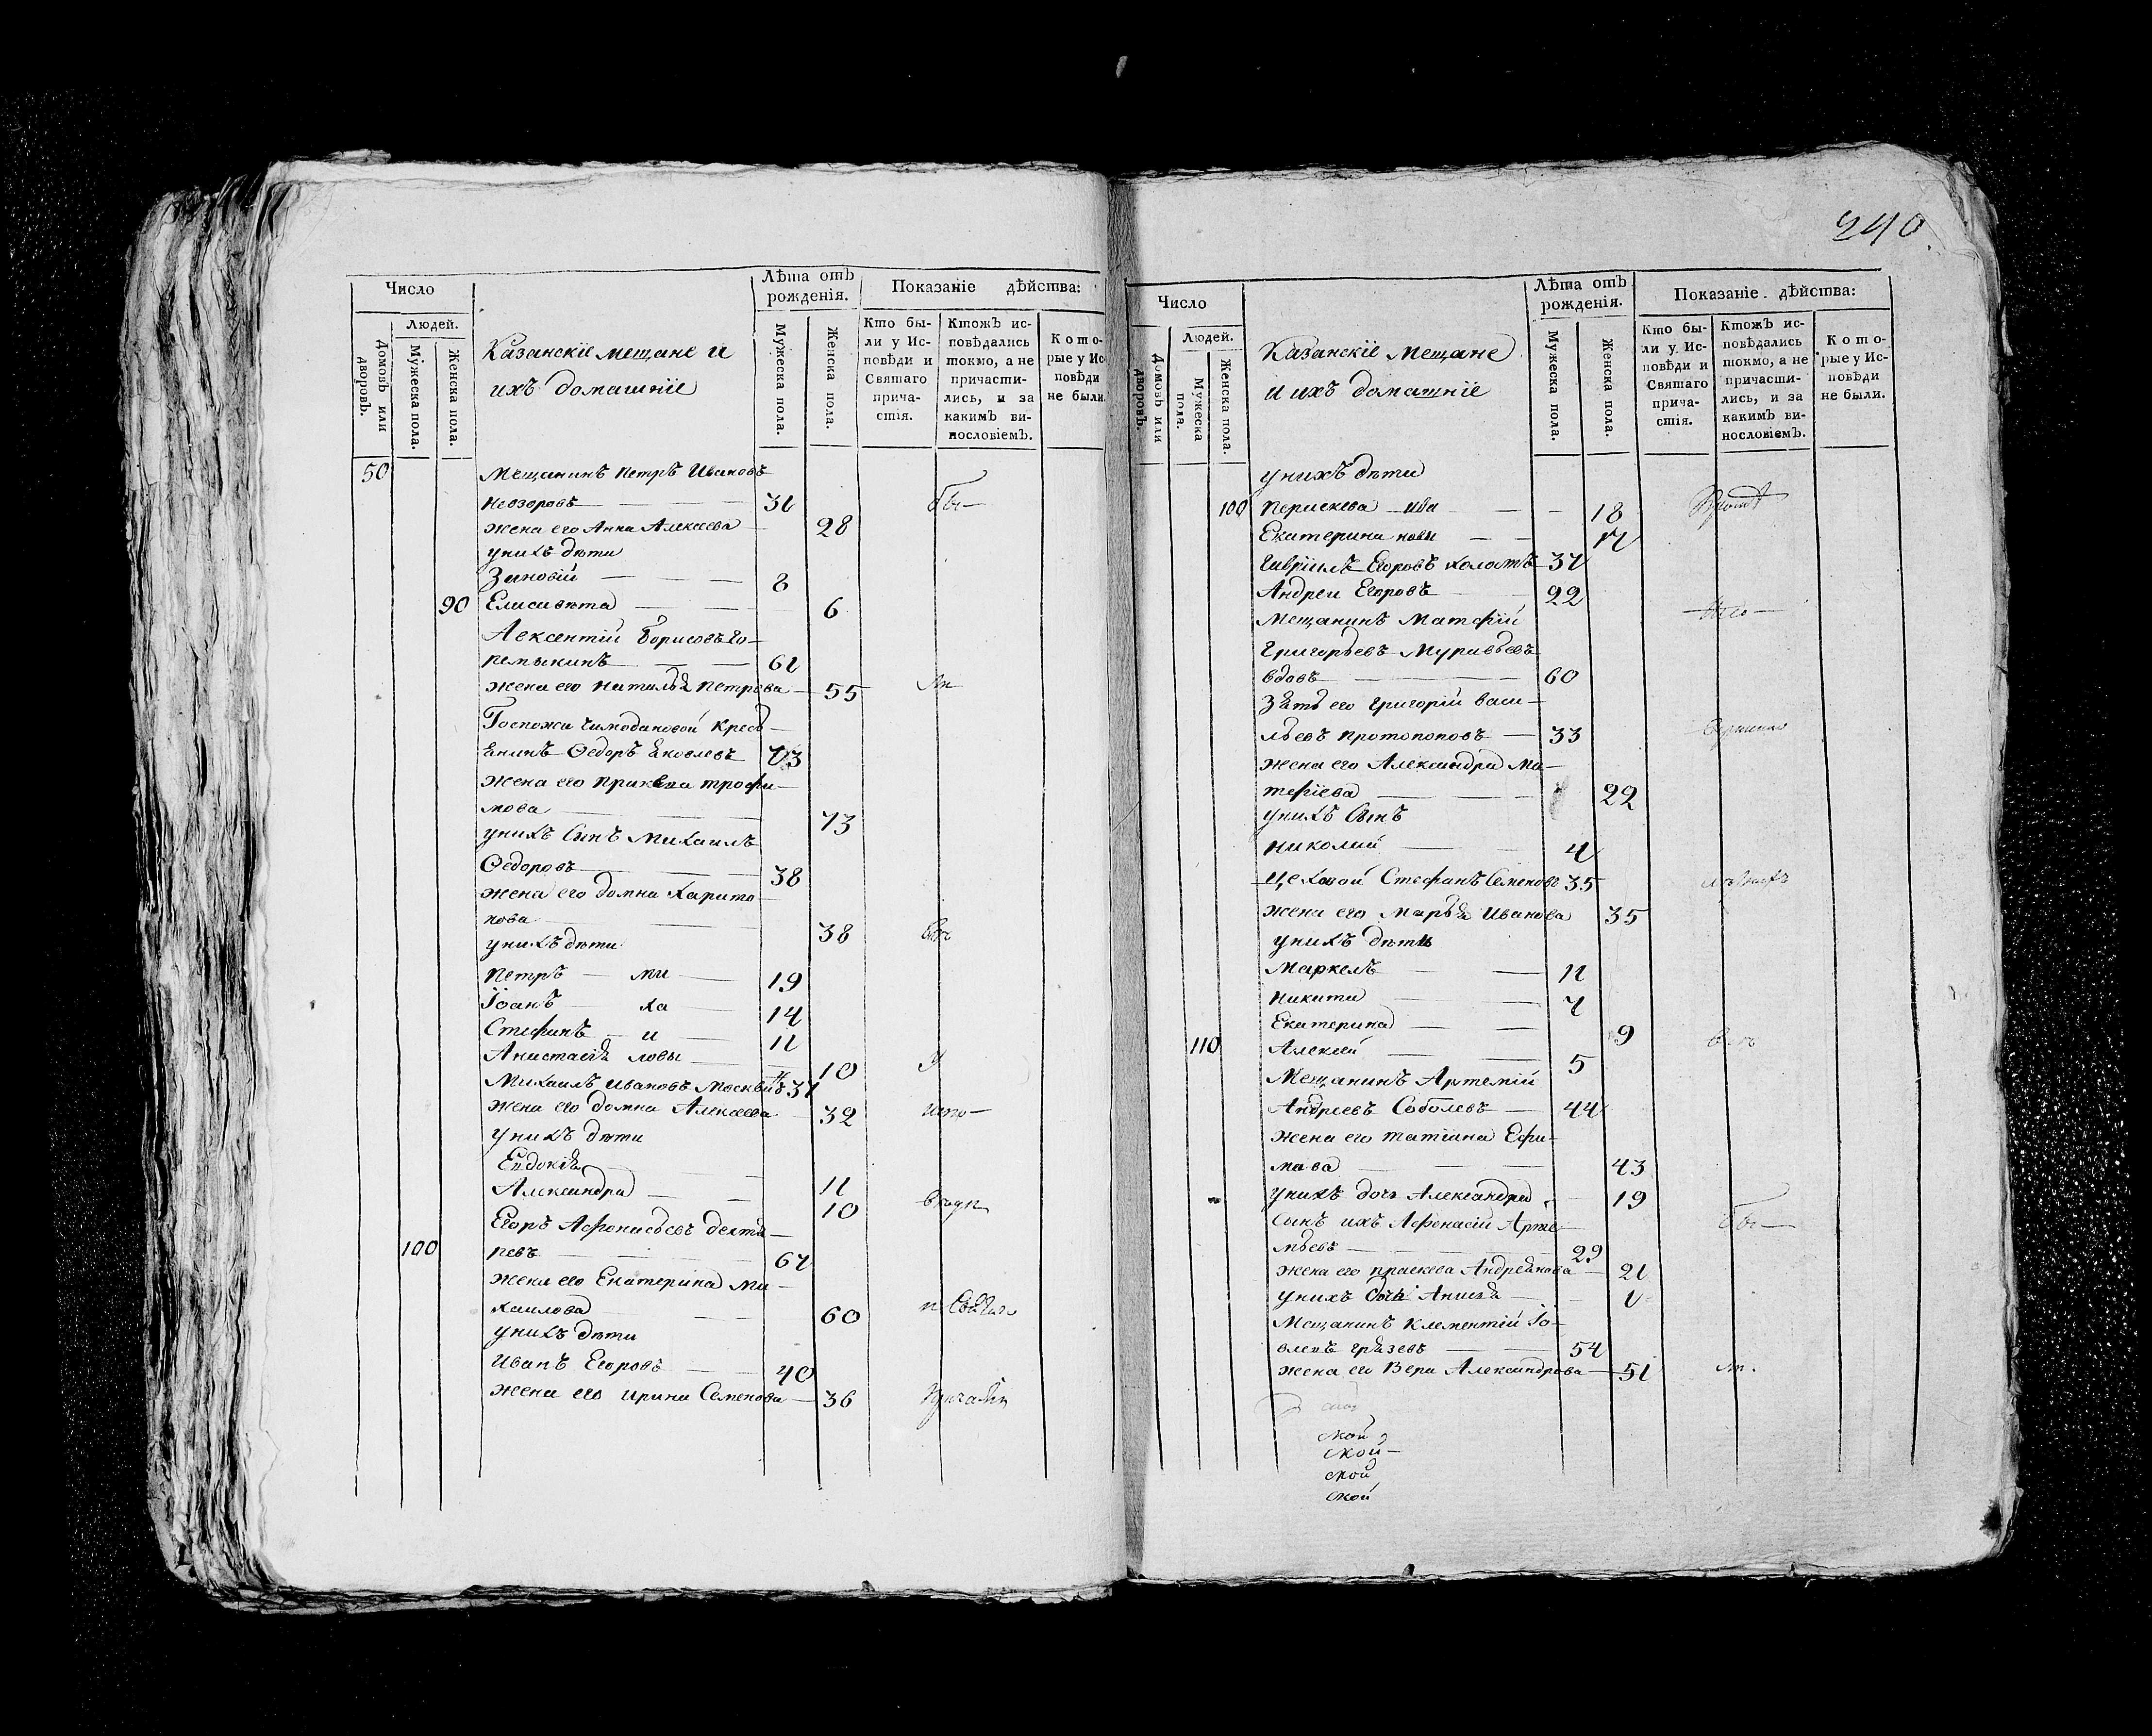 Число
Людей.
Домовъ или дворовъ.
Мужеска пола.
Женска пола.
Казанскіе мещане и
ихъ домашніе
Лѣта отъ
рожденія.
Мужеска пола.
Женска пола.
Показаніе дѣйства:
Кто бы-
ли у Ис-
повѣди и
Святаго
прича-
стія.
Ктожъ ис-
повѣдались
токмо, а не
причасти-
лись, и за
какимъ ви-
нословіемъ.
Кото-
рые у Ис-
повѣди
не были.
50 Мещанинъ Петръ Ивановъ
Невзоровъ 31 бы-
жена его Анна Алексеева 28
у нихъ дѣти
Зиновій 8
90 Елисавѣта 6
Авксентій Борисовъ Го-
ремыкинъ 61
жена его Наталья Петрова 55 ли
Госпожи Чимодановой Кресть-
янинъ Ѳедоръ Яковлевъ 73
жена его Прасковья Трофи-
мова 73
у нихъ Сынъ Михаилъ
Ѳедоровъ 38
жена его Домна Харито
нова 38
у нихъ дѣти
Петръ ми 19
Іоанъ ха 14
Стефанъ и 11
Анистасія ловы 10 у
Михаилъ Ивановъ Москвинъ 37
жена его Домна Алексеева 32
у нихъ дѣти
Евдокія 11
Александра 10
Егоръ Афонасьевъ Дехтя-
100 ревъ 67
жена его Екатерина Ми-
хаилова 60
у нихъ дѣти
Иванъ Егоровъ 40
жена его Ирина Семенова 36
240
Число
Людей.
Домовъ или дворовъ.
Мужеска пола.
Женска пола.
Казанскіе мещане
и ихъ домашніе
Лѣта отъ
рожденія.
Мужеска пола.
Женска пола.
Показаніе дѣйства:
Кто бы-
ли у Ис-
повѣди и
Святаго
прича-
стія.
Ктожъ ис-
повѣдались
токмо, а не
причасти-
лись, и за
какимъ ви-
нословіемъ.
Кото-
рые у Ис-
повѣди
не были.
у нихъ дѣти
100 Перискева ива 18
Екатерина новы 17
Гавріилъ Егоровъ холостъ 37
Андреи Егоровъ 22
Мещанинъ Матфій
Григорьевъ Муравьевъ
вдовъ 60
Зять его Григорій Васи-
льевъ Протопоповъ 33
жена его Александра Ма-
тфіева 22
у нихъ Сынъ
Николай 4
Цеховой Стефанъ Семеновъ 35
жена его Марья Иванова 35
у нихъ дѣти
Маркелъ 11
Никита 7
Екатерина 9
110 Алексей 5
Мещанинъ Артемій
Андреевъ Соболевъ 44
жена его Татіана Ефи-
мова 43
у нихъ дочь Александра 19
Сынъ ихъ Афонасій Арте бы-
мьевъ 29
жена его Праскева Андреянова 21
у нихъ дочь Анисья 1
Мещанинъ Клементій Іо-
влевъ Грязевъ 54
жена его Вера Александрова 51 ли.
ской
ской
ской
ской